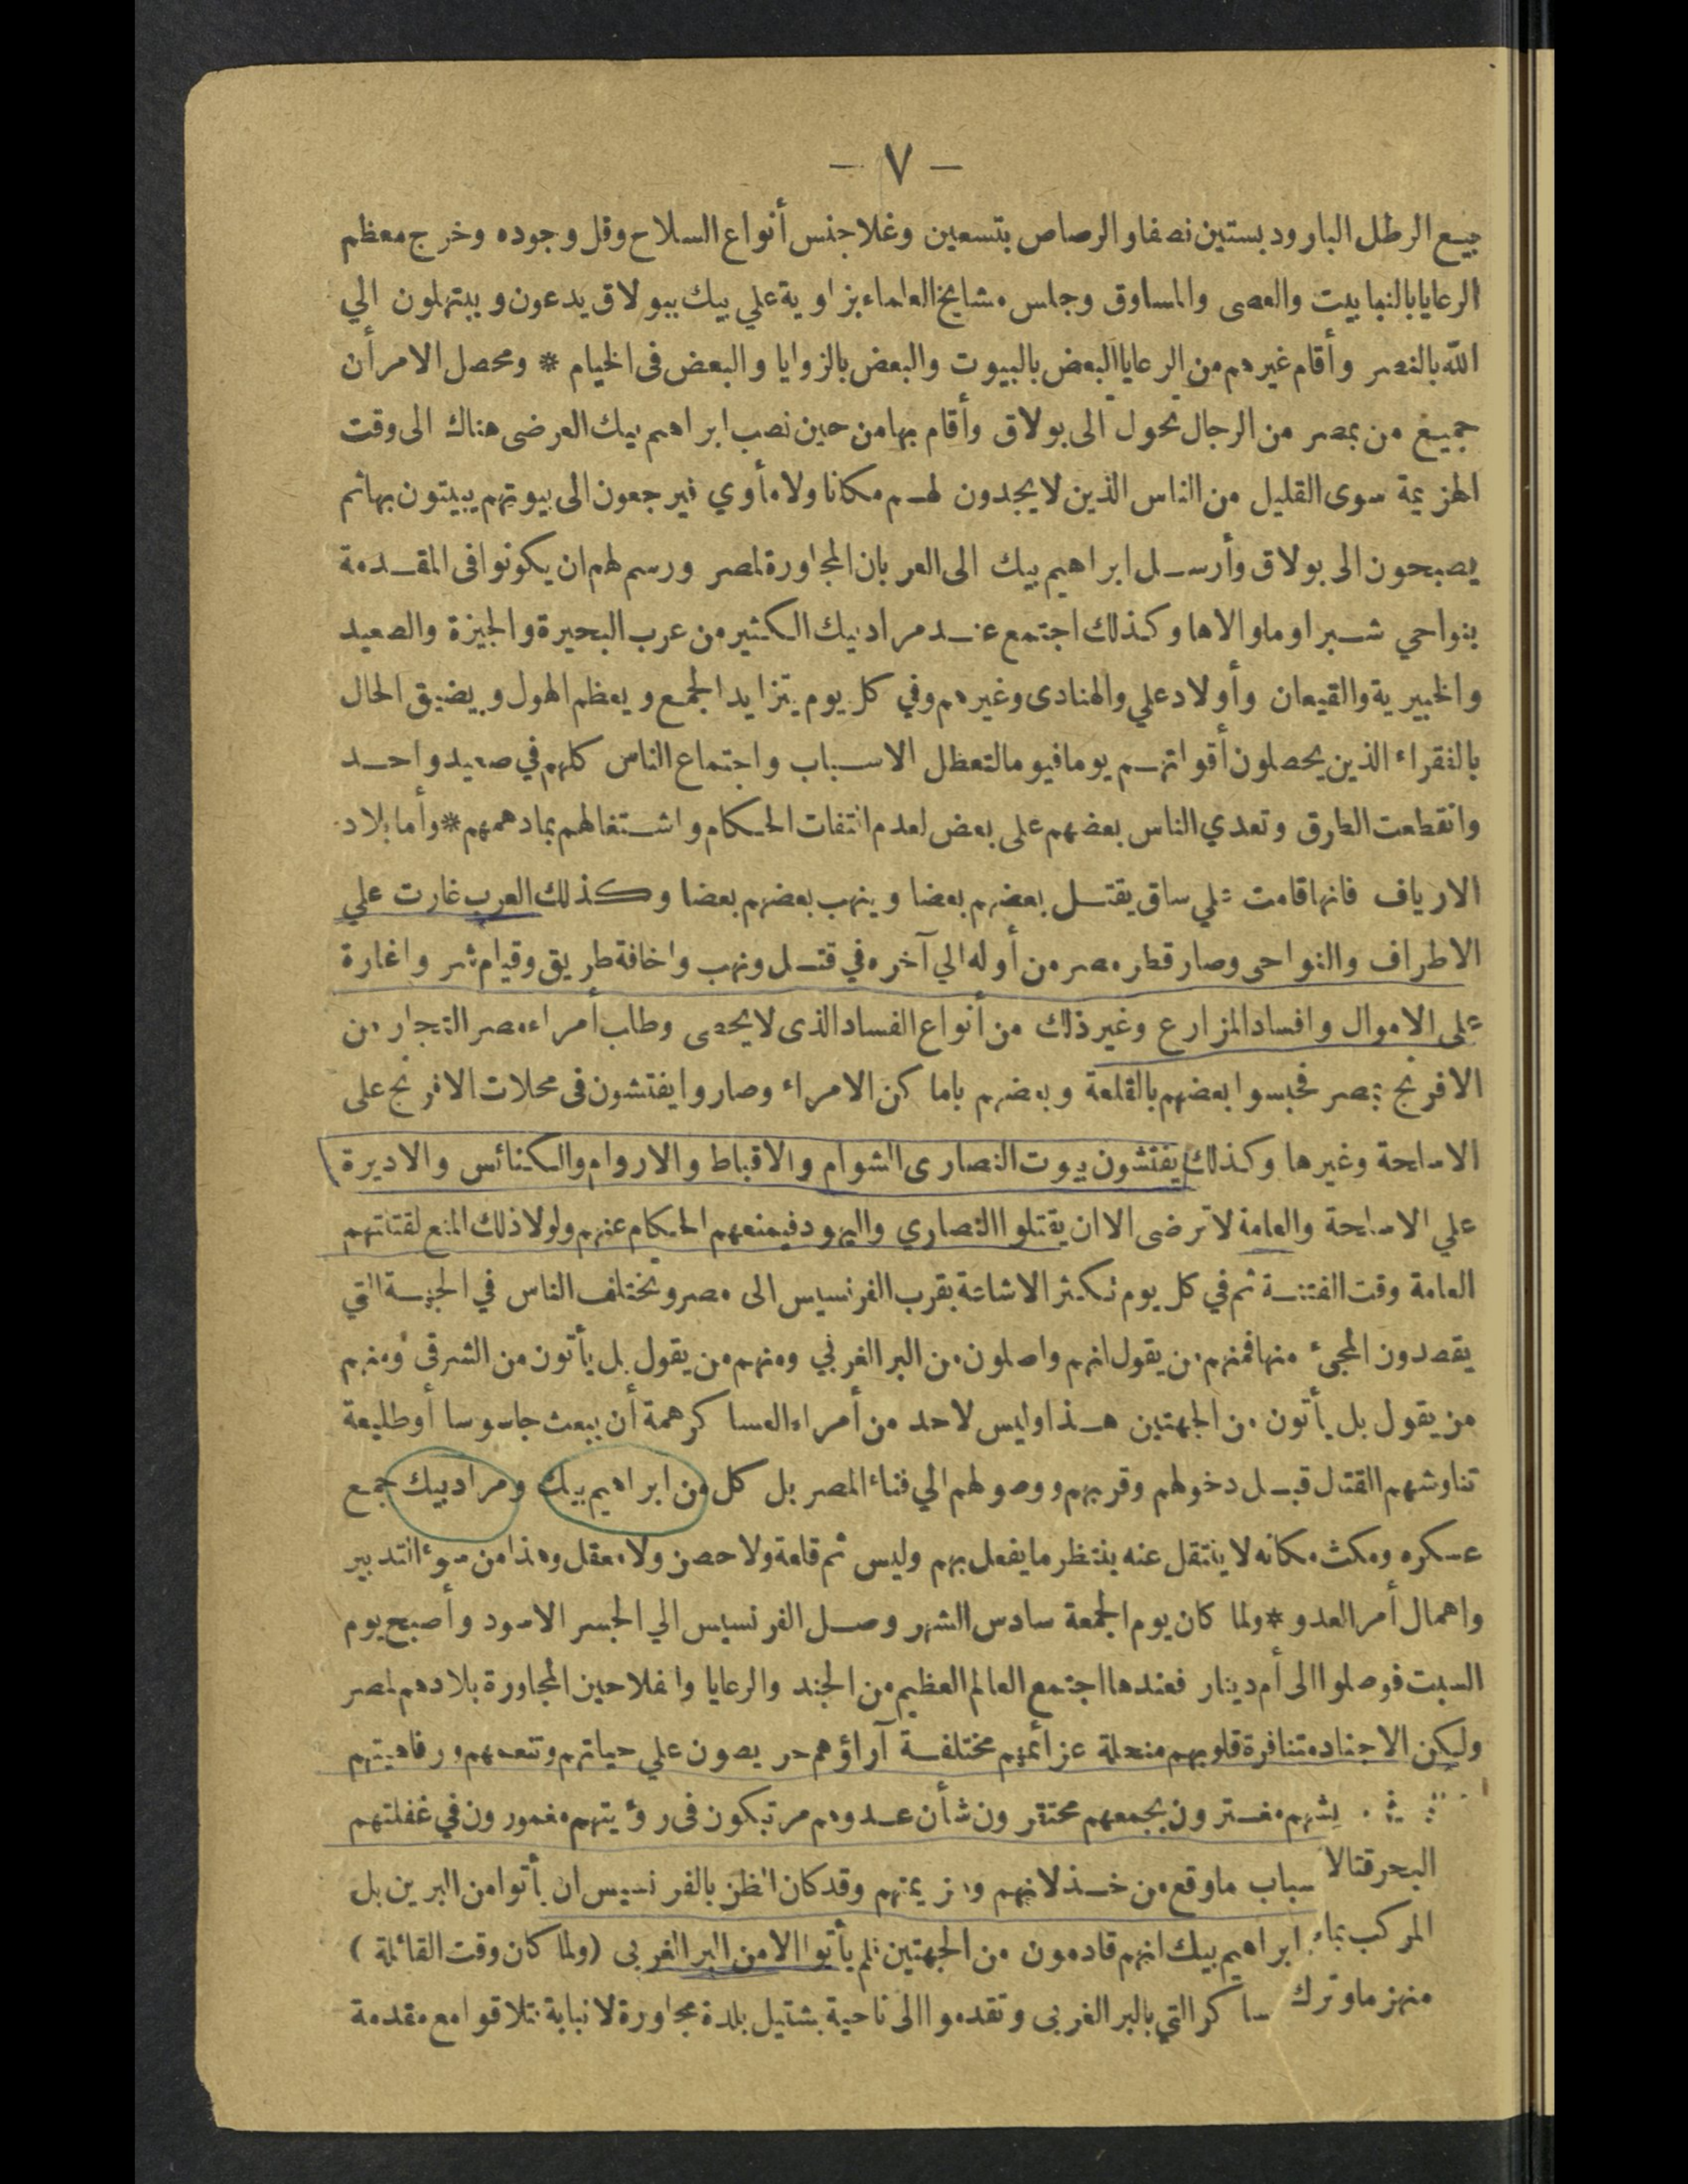 — ٧ —
بيع الرطل البارود بستين نصفا والرصاص بتسعين وغلا جنس أنواع السلاح وقل وجوده وخرج معظم
الرعايا بالنبابيت والعصى والمساوق وجلس مشايخ العلماء بزاوية علي بيك ببولاق يدعون ويبتهلون الي
الله بالنصر وأقام غيرهم من الرعايا البعض بالبيوت والبعض بالزوايا والبعض فى الخيام * ومحصل الامر أن
جميع من بمصر من الرجال تحول الى بولاق وأقام بها من حين نصب ابراهيم بيك العرضى هناك الى وقت
الهزيمة سوى القليل من الناس الذين لا يجدون لهم مكانا ولا مأوي فيرجعون الى بيوتهم يبيتون بها ثم
يصبحون الى بولاق وأرسل ابراهيم بيك الى العربان المجاورة لمصر ورسم لهم ان يكونوا فى المقدمة
بنواحي شبرا وما والاها وكذلك اجتمع عند مراد بيك الكثير من عرب البحيرة والجيزة والصعيد
والخبيرية والقيعان وأولاد علي والهنادى وغيرهم وفي كل يوم يتزايد الجمع ويعظم الهول ويضيق الحال
بالفقراء الذين يحصلون أقواتهم يوما فيوما لتعطل الاسباب واجتماع الناس كلهم في صعيد واحد
وانقطعت الطرق وتعدي الناس بعضهم على بعض لعدم التفات الحكام واشتغالهم بما دهمهم * وأما بلاد
الارياف فانها قامت علي ساق يقتل بعضهم بعضا وينهب بعضهم بعضا وكذلك العرب غارت علي
الاطراف والنواحى وصار قطر مصر من أوله الي آخره في قتل ونهب واخافة طريق وقيام شر واغارة
على الاموال وافساد المزارع وغير ذلك من أنواع الفساد الذى لا يحصى وطلب أمراء مصر التجار من
الافرنج بمصر فحبسوا بعضهم بالقلعة وبعضهم باماكن الامراء وصاروا يفتشون فى محلات الافرنج على
الاسلحة وغيرها وكذلك يفتشون بيوت النصارى الشوام والاقباط والاروام والكنائس والاديرة
علي الاسلحة والعامة لا ترضى الا ان يقتلوا النصاري واليهود فيمنعهم الحكام عنهم ولولا ذلك المنع لقتلتهم
العامة وقت الفتنة ثم في كل يوم تكثر الاشاعة بقرب الفرنسيس الى مصر وتختلف الناس في الجهة التي
يقصدون المجىء منها فمنهم من يقول انهم واصلون من البر الغربي ومنهم من يقول بل يأتون من الشرقى ومنهم
من يقول بل يأتون من الجهتين هذا وليس لاحد من أمراء العساكر همة أن يبعث جاسوسا أو طليعة
تناوشهم القتال قبل دخولهم وقربهم ووصولهم الي فناء المصر بل كل من ابراهيم بيك ومراد بيك جمع
عسكره ومكث مكانه لا ينتقل عنه ينتظر ما يفعل بهم وليس ثم قلعة ولا حصن ولا معقل وهذا من سوء التدبير
واهمال أمر العدو * ولما كان يوم الجمعة سادس الشهر وصل الفرنسيس الي الجسر الاسود وأصبح يوم
السبت فوصلوا الى أم دينار فعندها اجتمع العالم العظيم من الجند والرعايا والفلاحين المجاورة بلادهم لمصر
ولكن الاجناد متنافرة قلوبهم منحلة عزائمهم مختلفة آراؤهم حريصون علي حياتهم وتنعمهم ورفاهيتهم
يشهم مغترون بجمعهم محتقرون شأن عدوهم مرتبكون فى رؤيتهم مغمورون في غفلتهم
البحر قتالا سباب ما وقع من خذلانهم وهزيمتهم وقد كان الظن بالفرنسيس ان يأتوا من البرين بل
المركب بماء ابراهيم بيك انهم قادمون من الجهتين فلم يأتوا الا من البر الغربى (ولما كان وقت القائلة)
منهزما وترك ساكر التي بالبر الغربى وتقدموا الى ناحية بشتيل بلدة مجاورة لانبابة فتلاقوا مع مقدمة